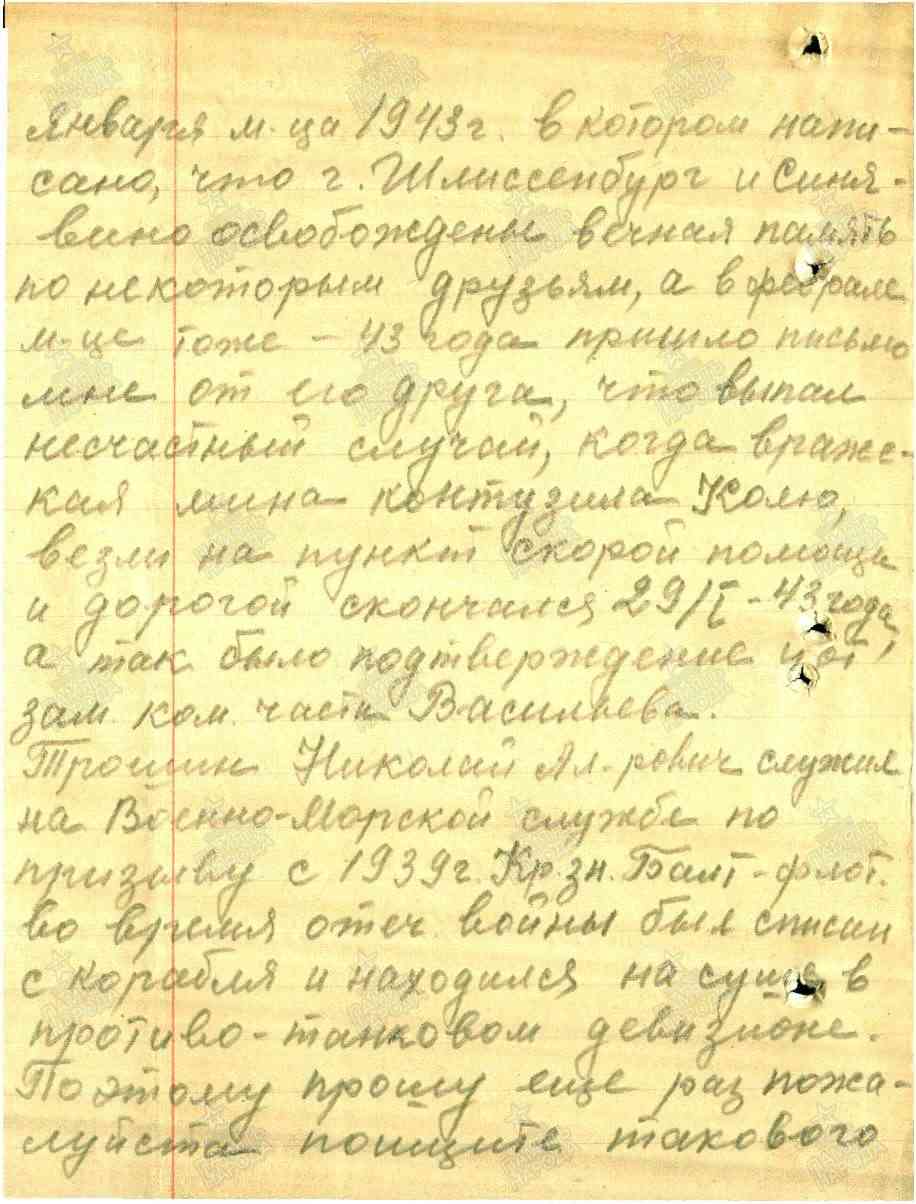 Января м-ца 1943г. в котором напи-
сано, что г. Шлиссенбург и Синя-
вино освобождены вечная память
по некоторым друзьям, а в феврале
м-це тоже - 43 года пришло письмо
мне от его друга, что выпал
несчастный случай, когда вражес-
кая мина контузила Колю,
везли на пункт скорой помощи
и дорогой скончался 29/I - 43 года,
а так было подтверждение и от
зам. ком. части Васильева.
Трошин Николай Ал-рович служил
на Военно-Морской службе по
призыву с 1939г. Кр. зн. Балт-флот.
во время отеч. войны был списан
с корабля и находился на суше в
противо-танковом девизионе.
Поэтому прошу еще раз пожа-
луйста поищите такового